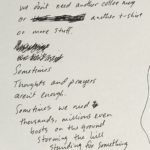 We don't need another coffee mug
or another t-shirt
or more stuff.
Sometimes
Thoughts and prayers
aren't enough.
Sometimes we need
thousands, millions even
boots on the ground
Storming the hill
Standing for something